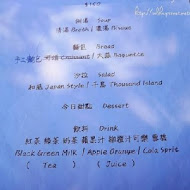 附湯 Soup
清湯 Broth | 濃湯 Brown
麵包 Bread
千二麵包 可頌 Croissant | 大蒜 Baguette
沙拉 Salad
和風 Japan Style | 千島 Thousand Island
今日甜點 Dessert
飲料 Drink
紅茶 綠茶 奶茶 蘋果汁 柳橙汁 可樂 雪碧
Black Green Milk | Apple Orange | Cola Sprit
( Tea ) ( Juice )